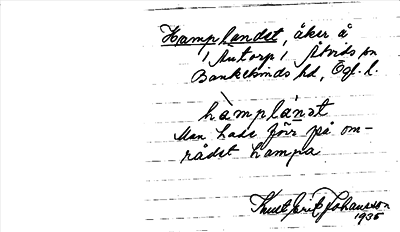 Hamplandet, åker å
/ Autorp / Åtvids sn
Bankekinds hd, Ögl. l.
hàmplánst
Man hade förr på om-
rådet hampa
Knut Erik Johansson
1935